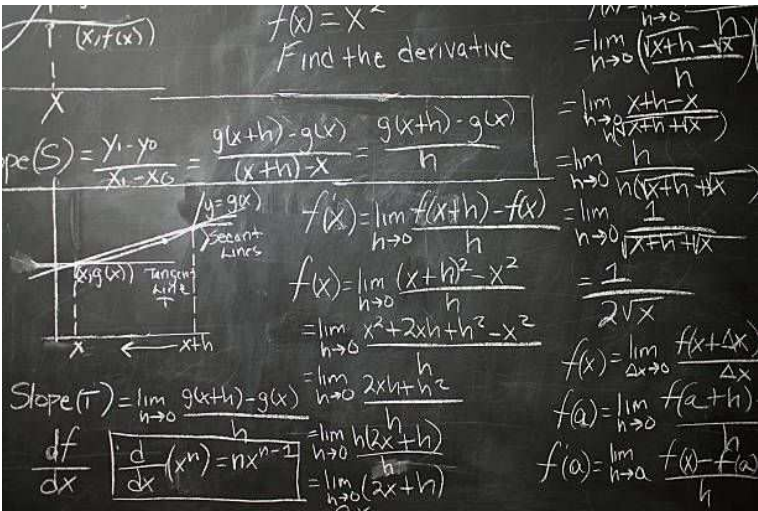 (x,f(x))
X
f(x) = x²
Find the derivative
pe(S) = y₁-y₀/x₁-x₀ = g(x+h)-g(x)/(x+h)-x = g(x+h)-g(x)/h
y=g(x)
Secant
Lines
(x,g(x))
Tangent
Line
T
x ← x+h
Slope(T) = lim h→0 g(x+h)-g(x)/h
df/dx
d/dx (xⁿ) = nxⁿ⁻¹
f'(x) = lim h→0 f(x+h)-f(x)/h
f(x) = lim h→0 (x+h)²-x²/h
= lim h→0 x²+2xh+h²-x²/h
= lim h→0 2xh+h²/h
= lim h→0 h(2x+h)/h
= lim h→0 (2x+h)
= lim h→0 (√x+h-√x/h)
= lim h→0 x+h-x/h(√x+h+√x)
= lim h→0 h/h(√x+h+√x
= lim h→0 1/√x+h+√x
= 1/2√x
f(x) = lim Δx→0 f(x+Δx)/Δx
f(a) = lim h→0 f(a+h)/h
f'(a) = lim h→a f(x)-f(a)/h